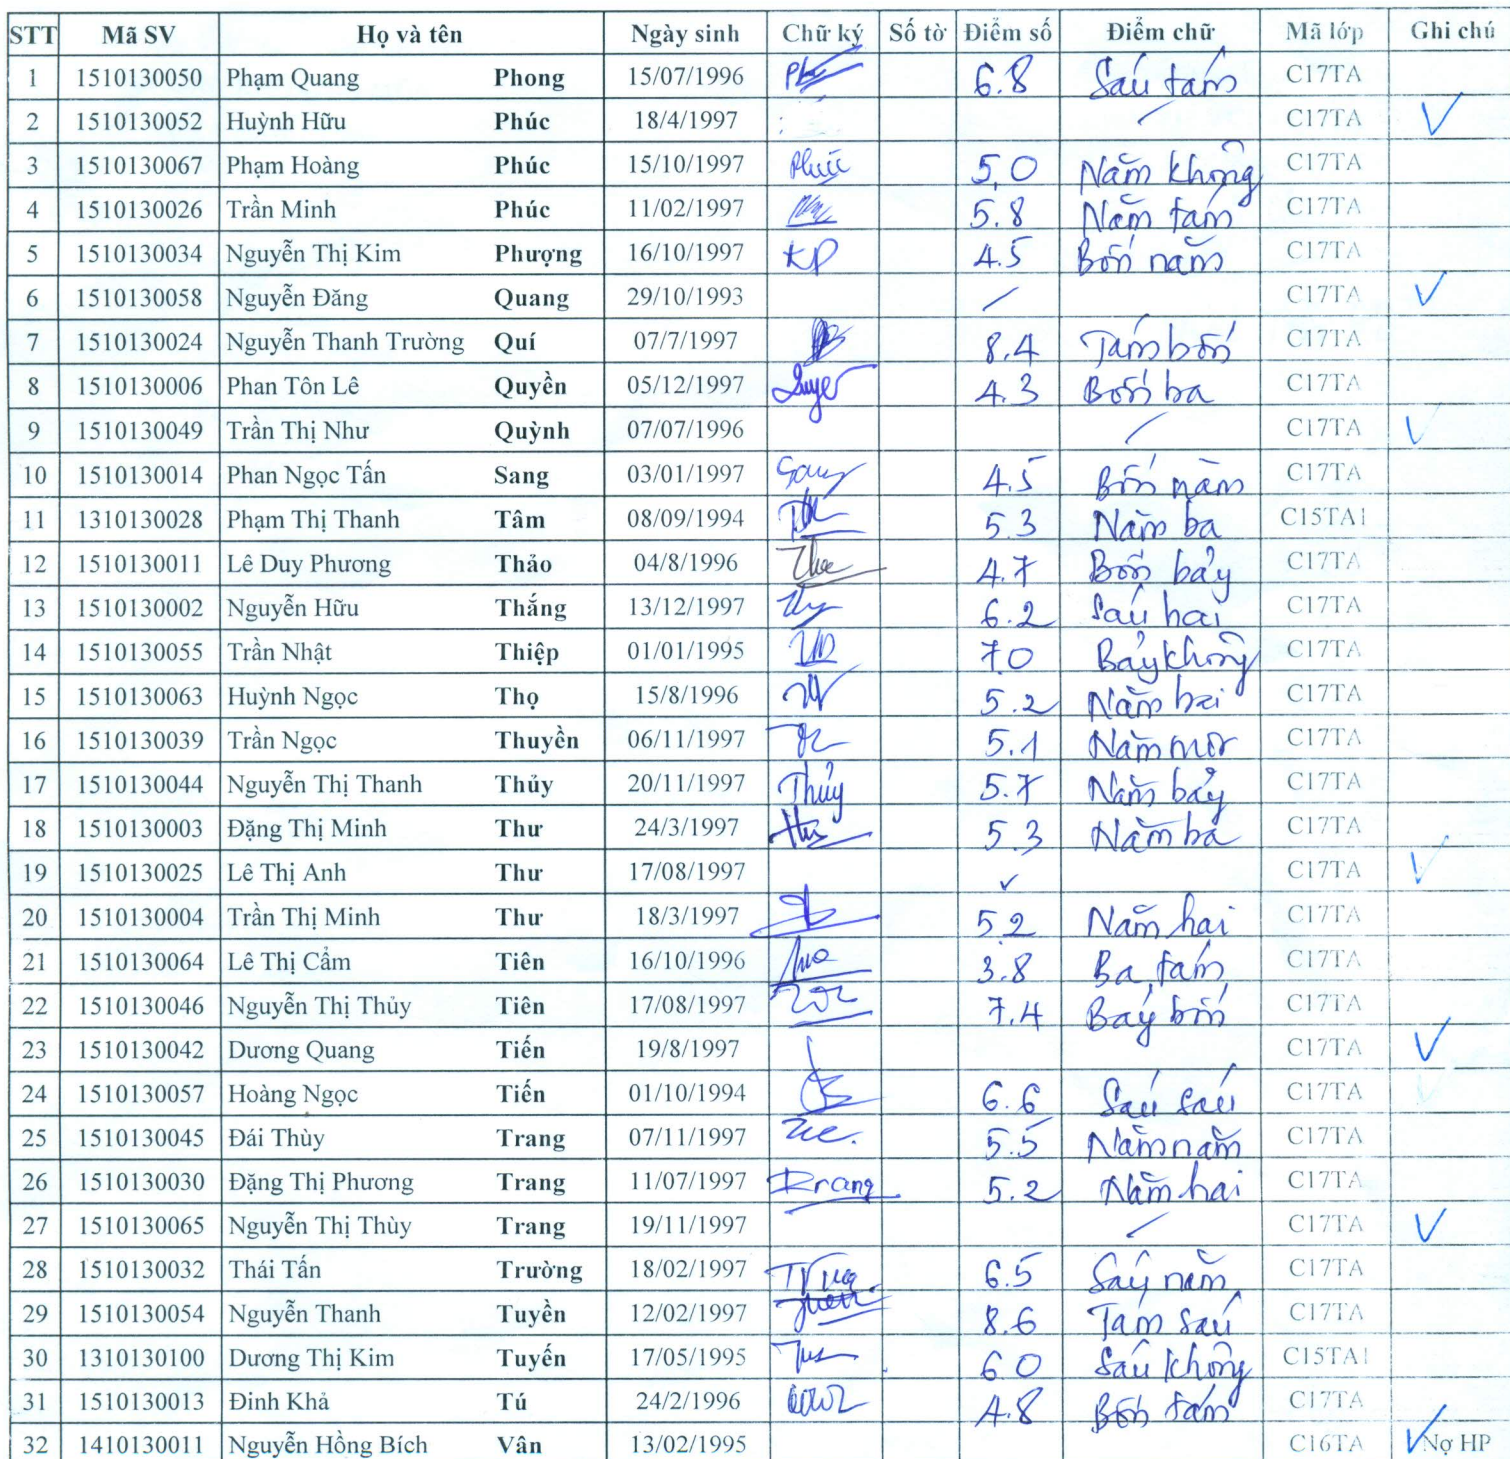 STT Mã SV Họ và tên Ngày sinh Chữ ký Số tờ Điểm số Điểm chữ Mã lớp Ghi chú
1 1510130050 Phạm Quang Phong 15/07/1996 6.8 Sáu tám C17TA
2 1510130052 Huỳnh Hữu Phúc 18/4/1997 C17TA
3 1510130067 Phạm Hoàng Phúc 15/10/1997 Phúc 5,0 Năm không C17TA
4 1510130026 Trần Minh Phúc 11/02/1997 5.8 Năm tám C17TA
5 1510130034 Nguyễn Thị Kim Phượng 16/10/1997 KP 4.5 Bốn năm C17TA
6 1510130058 Nguyễn Đăng Quang 29/10/1993 C17TA
7 1510130024 Nguyễn Thanh Trường Quí 07/7/1997 8.4 Tám bốn C17TA
8 1510130006 Phan Tôn Lê Quyền 05/12/1997 4.3 Bốn ba C17TA
9 1510130049 Trần Thị Như Quỳnh 07/07/1996 C17TA
10 1510130014 Phan Ngọc Tấn Sang 03/01/1997 Sang 4.5 Bốn năm C17TA
11 1310130028 Phạm Thị Thanh Tâm 08/09/1994 5.3 Năm ba C15TA1
12 1510130011 Lê Duy Phương Thảo 04/8/1996 4.7 Bốn bảy C17TA
13 1510130002 Nguyễn Hữu Thắng 13/12/1997 6.2 Sáu hai C17TA
14 1510130055 Trần Nhật Thiệp 01/01/1995 7.0 Bảy không C17TA
15 1510130063 Huỳnh Ngọc Thọ 15/8/1996 5.2 Năm hai C17TA
16 1510130039 Trần Ngọc Thuyền 06/11/1997 5.1 Năm một C17TA
17 1510130044 Nguyễn Thị Thanh Thủy 20/11/1997 Thủy 5.7 Năm bảy C17TA
18 1510130003 Đặng Thị Minh Thư 24/3/1997 5.3 Năm ba C17TA
19 1510130025 Lê Thị Anh Thư 17/08/1997 C17TA
20 1510130004 Trần Thị Minh Thư 18/3/1997 5.2 Năm hai C17TA
21 1510130064 Lê Thị Cẩm Tiên 16/10/1996 3.8 Ba tám C17TA
22 1510130046 Nguyễn Thị Thủy Tiên 17/08/1997 7.4 Bảy bốn C17TA
23 1510130042 Dương Quang Tiến 19/8/1997 C17TA
24 1510130057 Hoàng Ngọc Tiến 01/10/1994 6.6 Sáu sáu C17TA
25 1510130045 Đái Thùy Trang 07/11/1997 5.5 Năm năm C17TA
26 1510130030 Đặng Thị Phương Trang 11/07/1997 Trang 5.2 Năm hai C17TA
27 1510130065 Nguyễn Thị Thùy Trang 19/11/1997 C17TA
28 1510130032 Thái Tấn Trường 18/02/1997 6.5 Sáu năm C17TA
29 1510130054 Nguyễn Thanh Tuyền 12/02/1997 8.6 Tám sáu C17TA
30 1310130100 Dương Thị Kim Tuyến 17/05/1995 6.0 Sáu không C15TA1
31 1510130013 Đinh Khả Tú 24/2/1996 4.8 Bốn tám C17TA
32 1410130011 Nguyễn Hồng Bích Vân 13/02/1995 C16TA Nợ HP